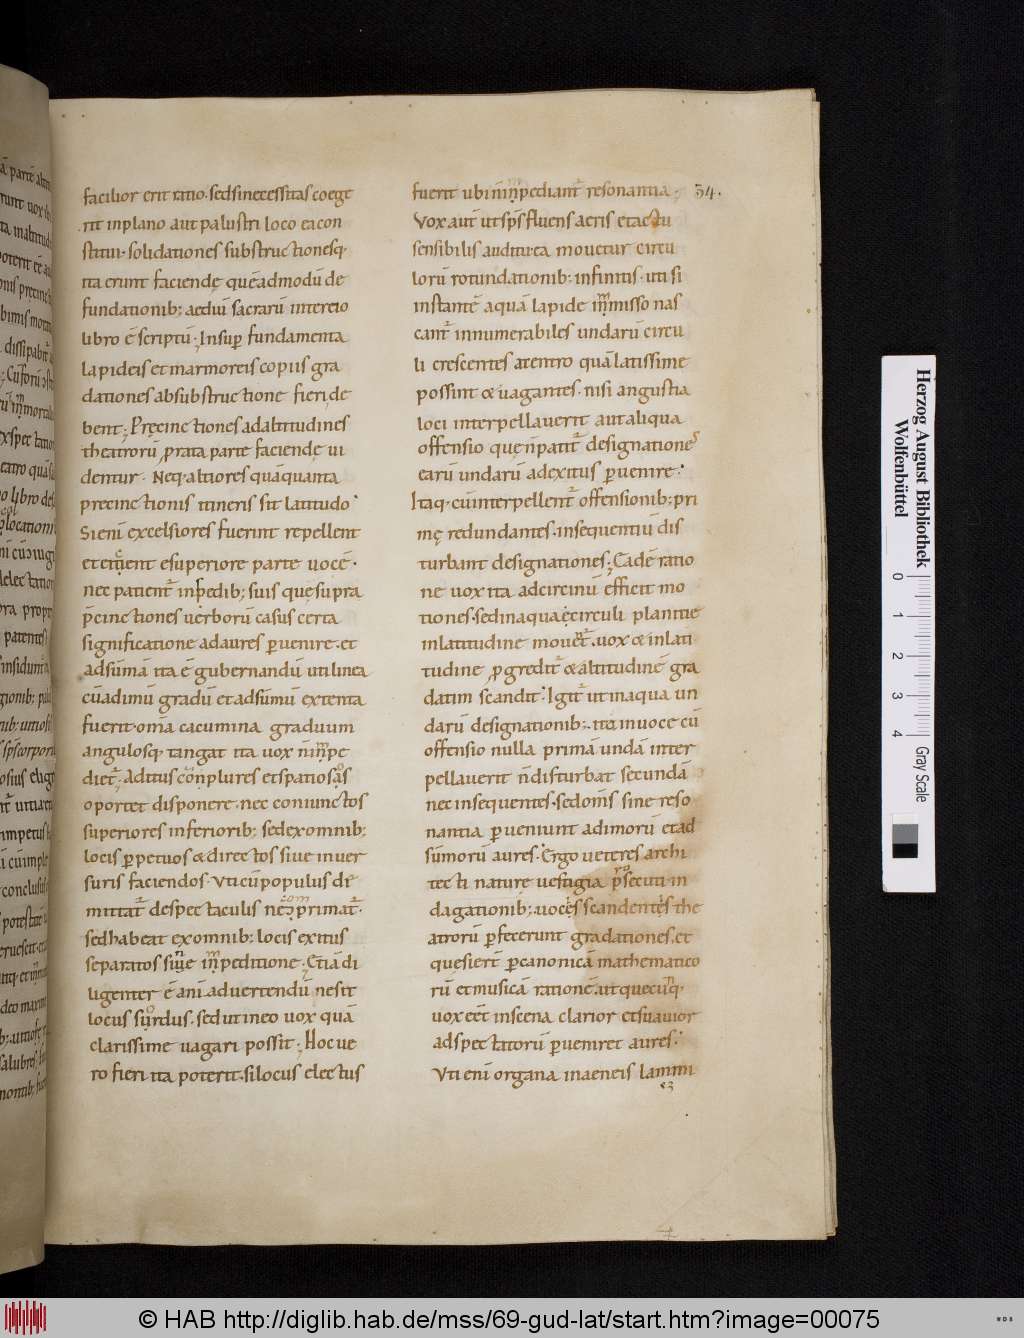 facilior erit ratio. sedsinecessitas coege
rit inplano aut palustri loco eacon
stitui. solidationes substructionesq;
ita erunt faciendę quēadmodū de
fundationib; aediū sacrarū intercio
libro ē scriptū; Insup fundamenta
lapideis et marmoreis copiis gra
dationes absubstructione fieri de
bent; Pręcinctiones adaltitudines
theatrorū prata parte faciendę ui
dentur. Neq. altiores quāquanta
precinctionis itineris sit latitudo.
Sienī excelsiores fuerint repellent
et esuperiore parte uocē.
nec patient inp̄edib; suis quę supra
p̄cinctiones uerborū casus certa
significatione adaures puenire. et
adsūmā ita ē gubernandū uti linea
cū adimū gradū et adsūmū extenta
fuerit. omīa cacumina graduum
angulosq. tangat ita uox n̄ impe
diet; aditus complures et spatiosos
oportet disponere. nec coniunctos
superiores inferiorib; sed ex omnib;
locis ppetuos & directos siue inuer
suris faciendos. Uti cū populus di
mittat despectaculis ne comprimat.
sed habeat ex omnib; locis exitus
separatos siue impeditione. Etiā di
ligenter ē anī aduertendū nesit
locus surdus. sed ut in eo uox quā
clarissime uagari possit; Hoc ue
ro fieri ita poterit. si locus electus
fuerit ubi n̄ impediant resonantia. 34.
Vox aut ut sps fluens aeris et actu
sensibilis auditu ea mouetur circu
lorū rotundationib; infinitis. uti si
instantē aquā lapide immisso nas
cant innumerabiles undarū circu
li crescentes acentro quā latissime
possint & uagantes. nisi angustia
loci interpellauerit aut aliqua
offensio quę n̄ patit designationes
earū undarū ad exitus puenire.
Itaq. cū interpellent offensionib; pri
mę redundantes. insequentiū dis
turbant designationes; Eadē ratio
ne uox ita ad circinū efficit mo
tiones. sed in aqua circuli planitie
in latitudine mouent. uox & in lati
tudine progredit & altitudinē gra
datim scandit. Igit ut in aqua un
darū designationib; ita in uoce cū
offensio nulla primā undā inter
pellauerit n̄ disturbat secundā
nec insequentes. sed om̄s sine reso
nantia pueniunt ad imorū et ad
sūmorū aures. Ergo ueteres archi
tecti nature uestigia psecuti in
dagationib; uocęs scandentęs the
atrorū pfecerunt gradationes. et
quesiert p canonicā mathematico
rū et musicā rationē. ut quecumq.
uox eēt in scena clarior et suauior
ad spectatorū pueniret aures.
Vti enī organa in aeneis lammi
Herzog August Bibliothek
Wolfenbüttel
0 1 2 3 4
Gray Scale
© HAB http://diglib.hab.de/mss/69-gud-lat/start.htm?image=00075